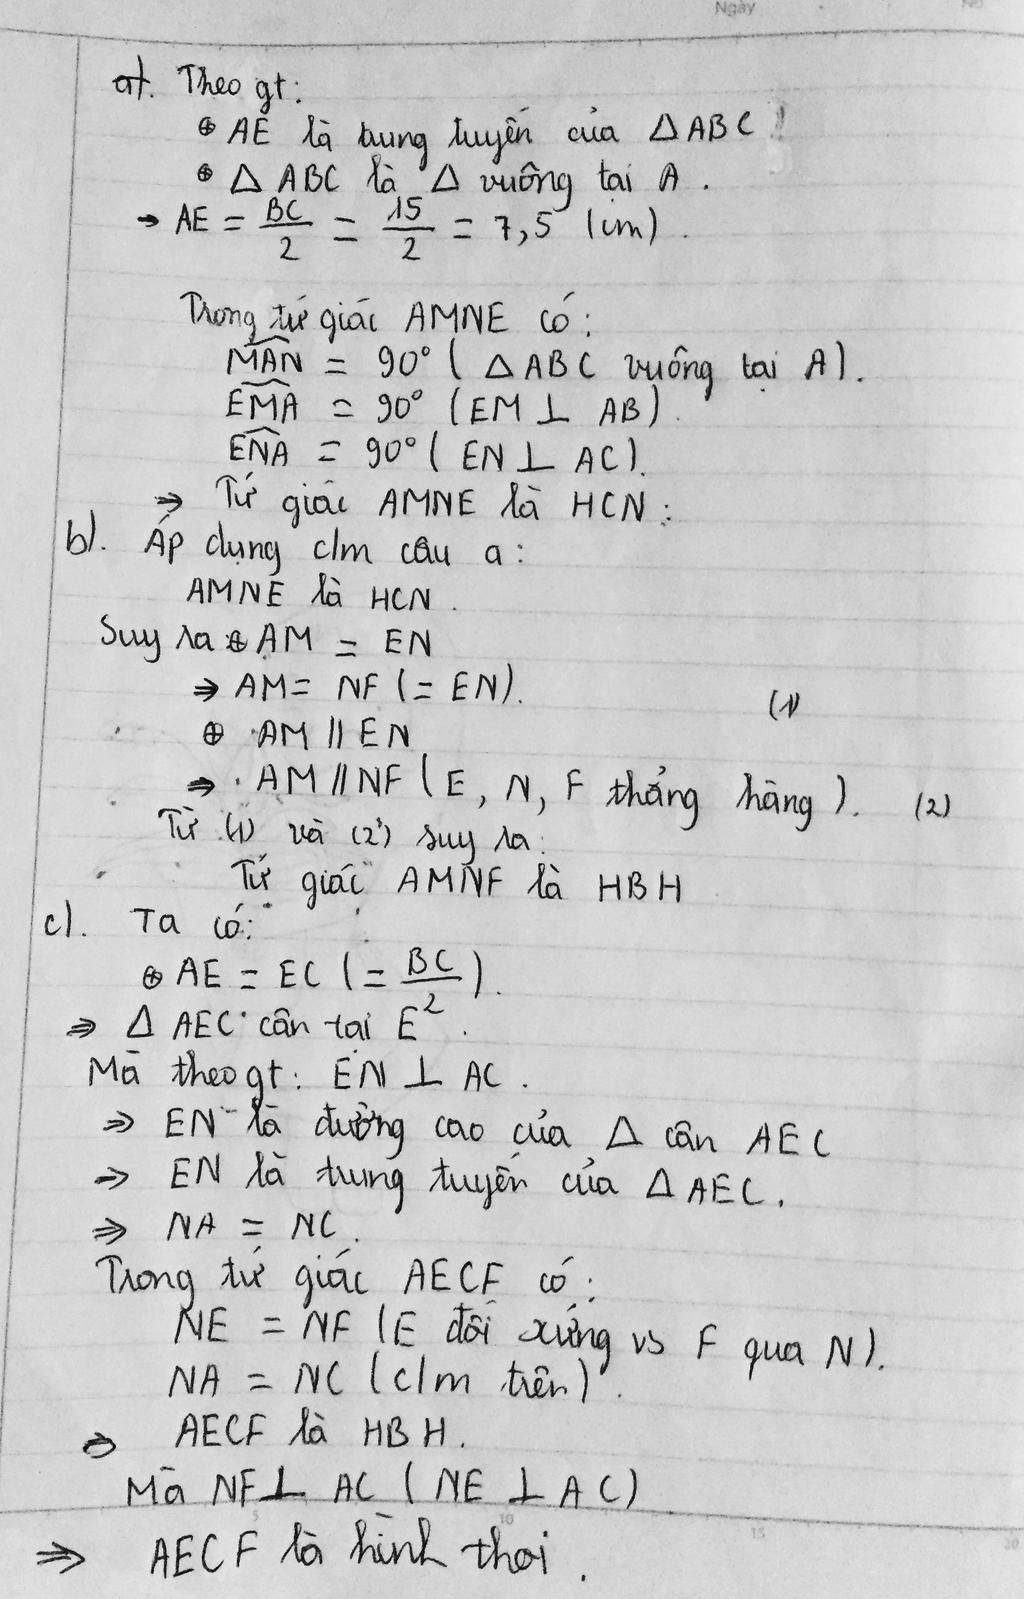 Ngày
a). Theo gt:
⊕ AE là trung tuyến của Δ ABC
⊕ Δ ABC là Δ vuông tại A.
→ AE = BC/2 = 15/2 = 7,5 (cm).
Trong tứ giác AMNE có:
MAN = 90° ( Δ ABC vuông tại A).
EMA = 90° (EM ⊥ AB).
ENA = 90° ( EN ⊥ AC).
⇒ Tứ giác AMNE là HCN.
b). Áp dụng c/m câu a:
AMNE là HCN.
Suy ra ⊕ AM = EN
⇒ AM = NF (= EN). (1)
⊕ AM // EN
⇒ AM // NF ( E, N, F thẳng hàng ). (2)
Từ (1) và (2) suy ra:
Tứ giác AMNF là HBH
c). Ta có:
⊕ AE = EC (= BC/2).
⇒ Δ AEC cân tại E.
Mà theo gt: EN ⊥ AC.
⇒ EN là đường cao của Δ cân AEC
⇒ EN là trung tuyến của Δ AEC.
⇒ NA = NC.
Trong tứ giác AECF có:
NE = NF (E đối xứng vs F qua N).
NA = NC (c/m trên).
⇒ AECF là HBH.
Mà NF ⊥ AC ( NE ⊥ AC)
5 10 15 20
⇒ AECF là hình thoi.